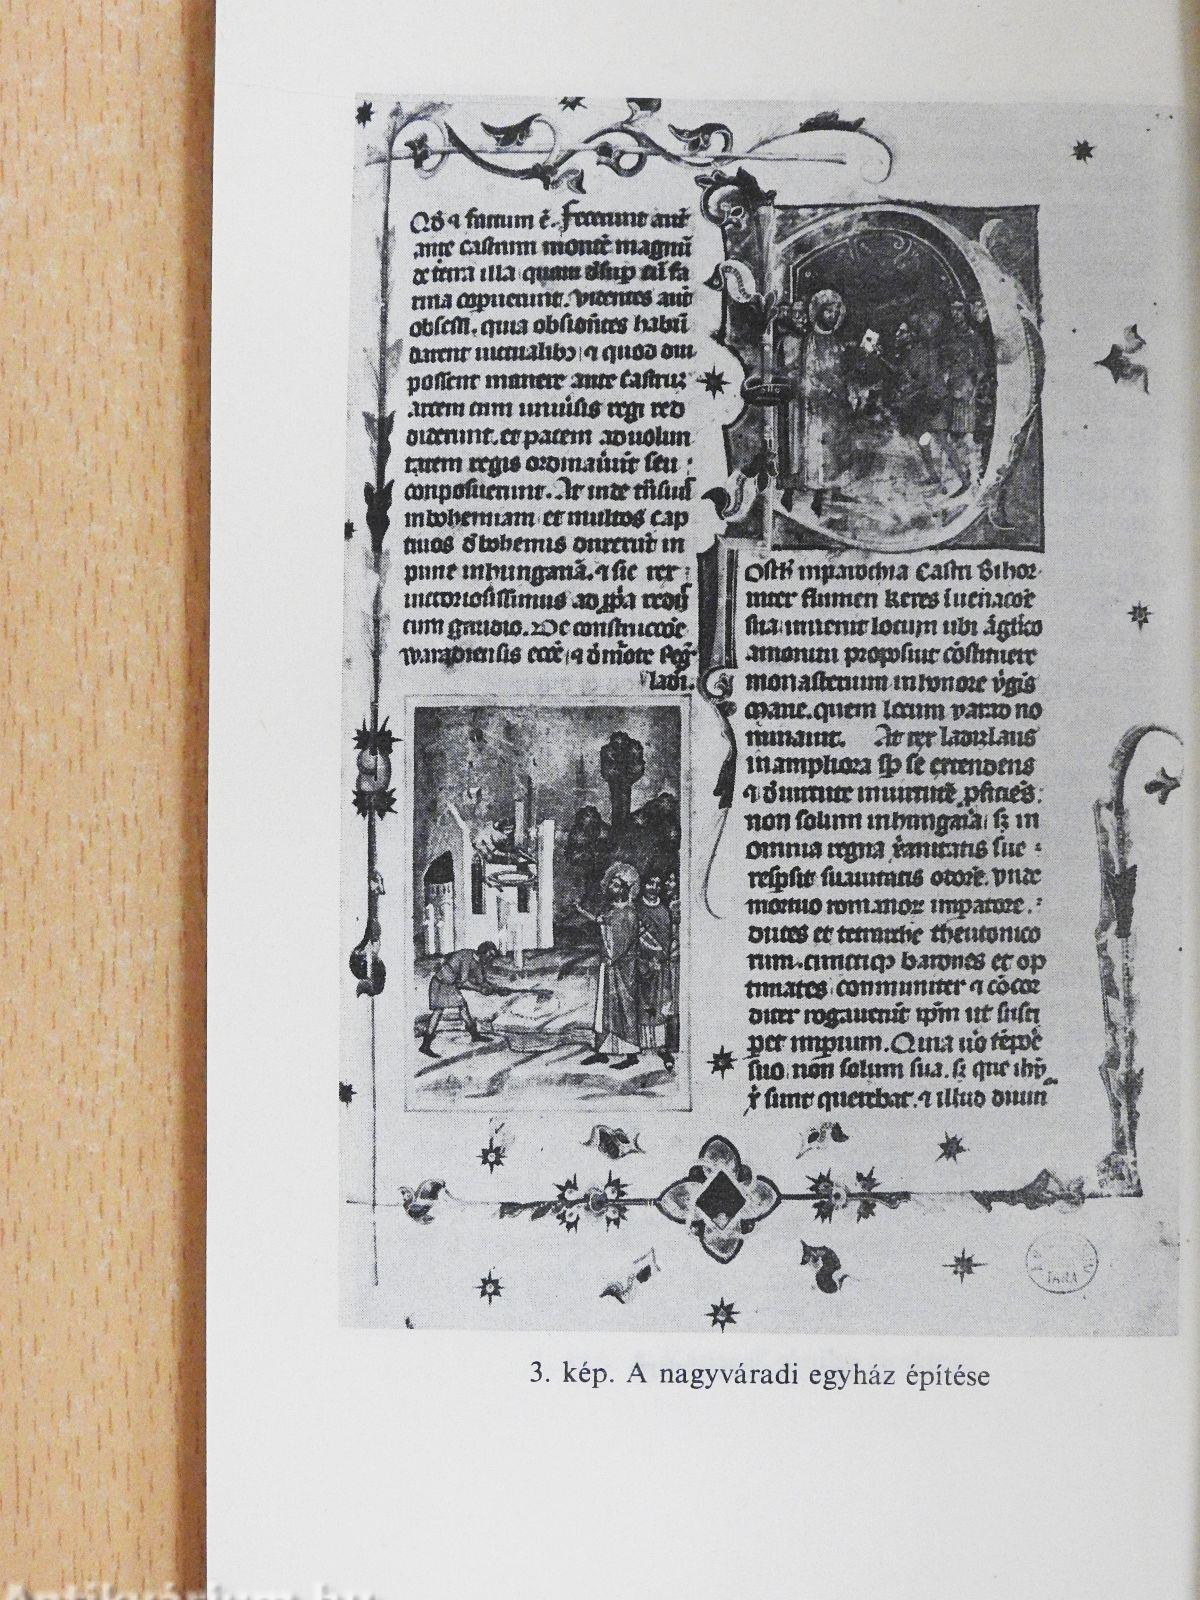 Qd̄ ⁊ factum ē. Fecerunt aut̄
ante castrum montē magnū
de terra illa quam dsup cū fa
rina copuerunt. videntes aut̄
obsessi. quia obsidētes habū
darent uictualibꝫ ⁊ quod diu
possent manere ante castruꝫ
arcem cum uniuīsis regi red
diderunt. et pacem ad uolun
tatem regis ordinauīt seu
conposuerunt. At inde trāsiuit
in bohemiam et multos cap
tiuos d bohemis duxerūt in
pune in hungariā. ⁊ sic rex
uictoriosissimus ad ꝓp̄a redijt
cum gaudio. De constructōe
waradiensis eccē ⁊ d mōte Reḡ
ladi.
Ostea in parochia Castri Bihor
inter flumen keres ī uenacōe
sua inuenit locum ubi āglico
amonitu proposuit cōstruere
monasterium in honore v̄gis
Marie. quem locum varad no
minauit. At rex ladizlaus
in ampliora sp̄ se extendens
⁊ d uirtute in uirtutē ꝓficiēs
non solum in hungaria sꝫ in
omnia regna x̄anitatis sue
resp̄sit suauitatis odorē. vnde
mortuo romanoꝝ imp̄atore.
duces et tetrarche theutonico
rum. cunctiqꝫ barones et op
timates communiter ⁊ cōcor
diter rogauerūt ip̄m ut susci
peret imp̄ium. Quia uō tēpoē
suo non solum sua. sꝫ que ihū
x̄ sunt querebat. ⁊ illud diuin
TÁRA
3. kép. A nagyváradi egyház építése